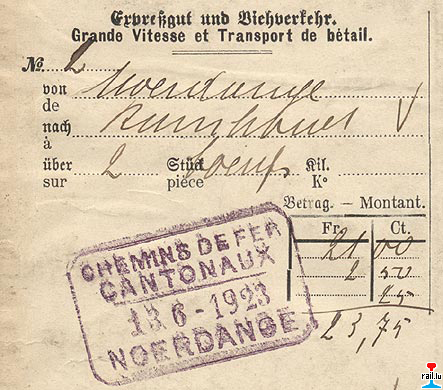 Expreßgut und Viehverkehr.
Grande Vitesse et Transport de bétail.
№ 2
von Noerdange
de
nach
à
über 2 Stück boeufs Kil.
sur pièce K°
Betrag. — Montant.
Fr. Ct.
21 00
2 50
25
23,75
CHEMINS DE FER
CANTONAUX
13 6-1923
NOERDANGE
rail.lu